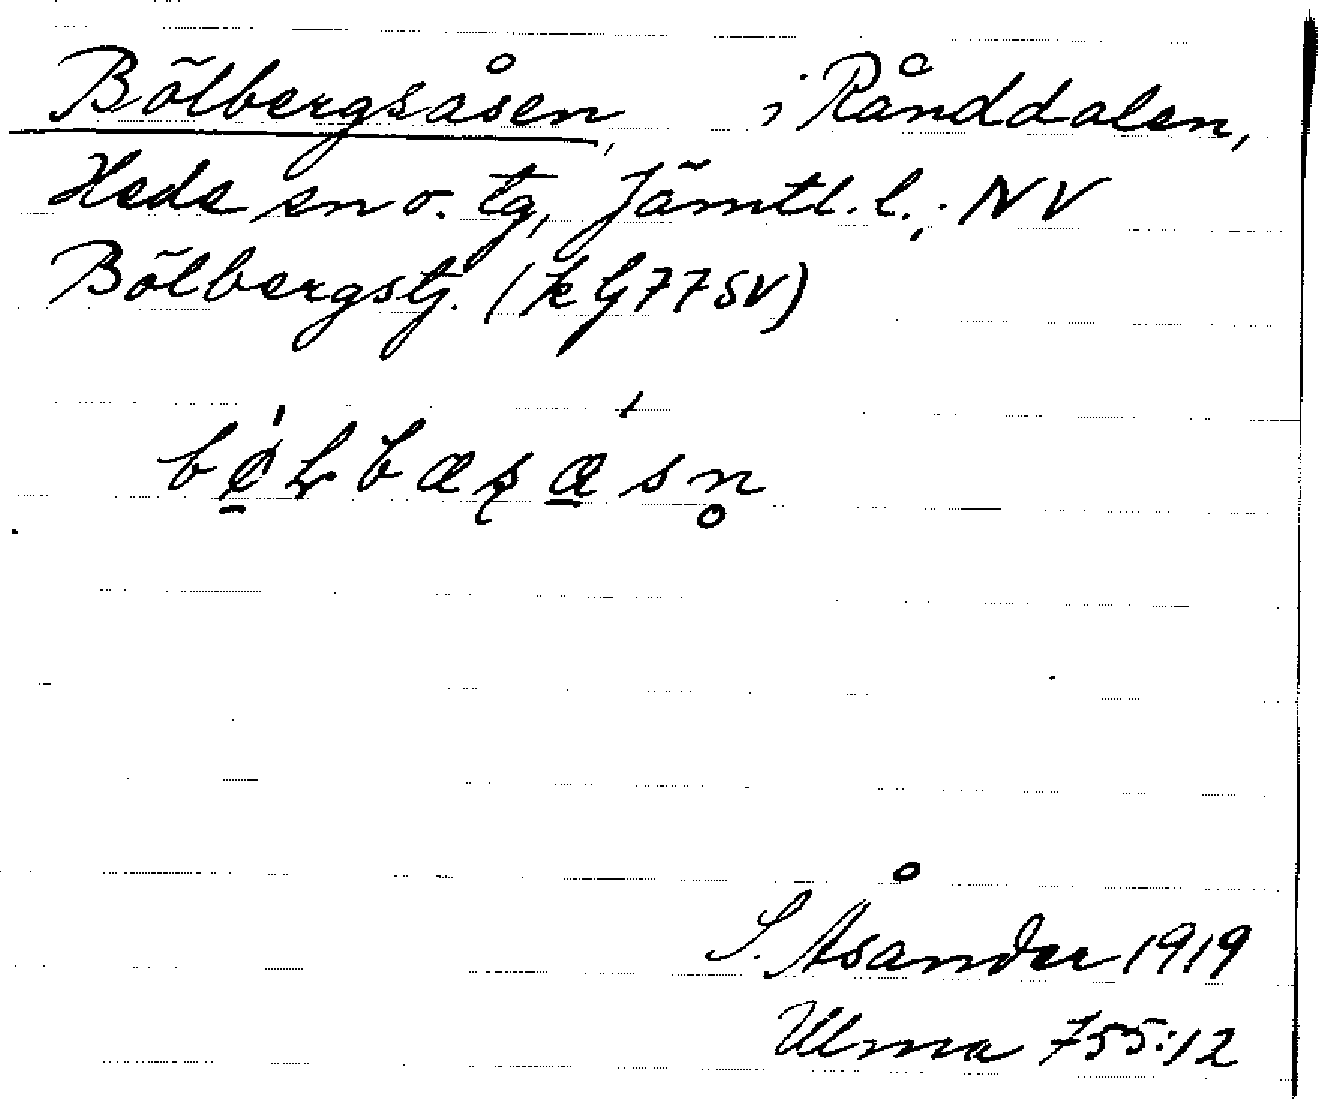 Bölbergsåsen, i Rånddalen,
Hede sn o. tg, Jämtl. l.; NV
Bölbergstj. (k G77SV)
S. Åsander 1919
Ulma 755:12